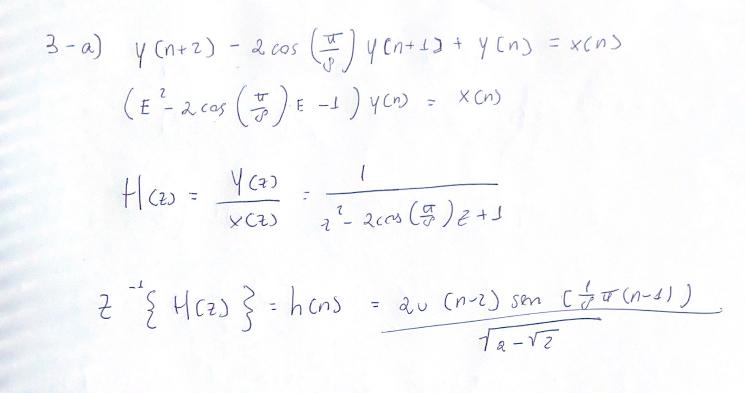 3-a) y(n+2) - 2cos(π/8) y(n+1) + y(n) = x(n)
(E² - 2cos(π/8) E - 1) y(n) = x(n)
H(z) = Y(z)/X(z) = 1/(z² - 2cos(π/8) z + 1)
Z⁻¹{H(z)} = h(n) = 2u(n-2) sen(1/8 π(n-1)) / √(2-√2)